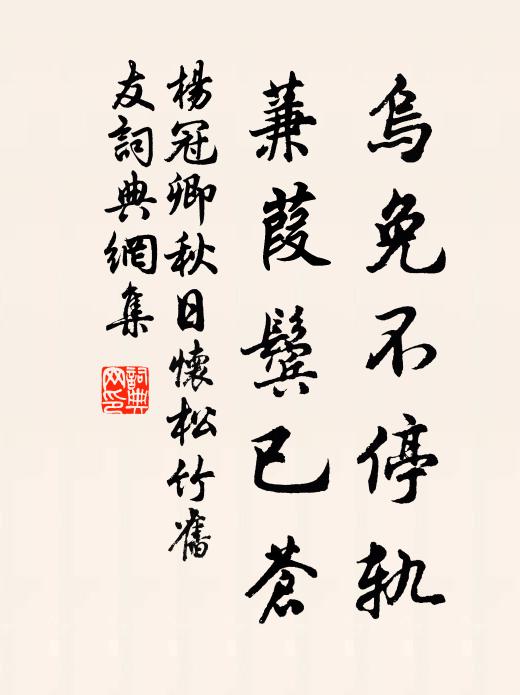 烏兔不停軌
蒹葭鬢已蒼
楊冠卿秋日懷松竹舊
友詞典網集
詞典網印